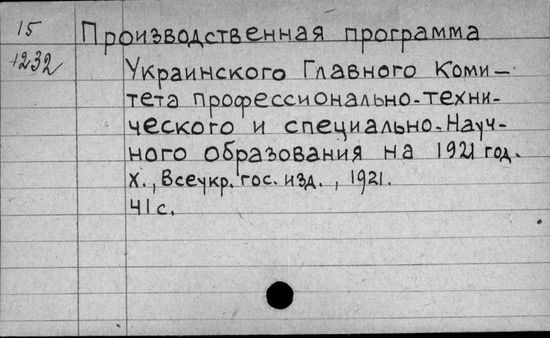 15 Производственная программа
1232 Украинского Главного Коми-
тета профессионально-техни-
ческого и специально-Науч-
ного образования на 1921 год.
Х., Всеукр. гос. изд., 1921.
41 с.